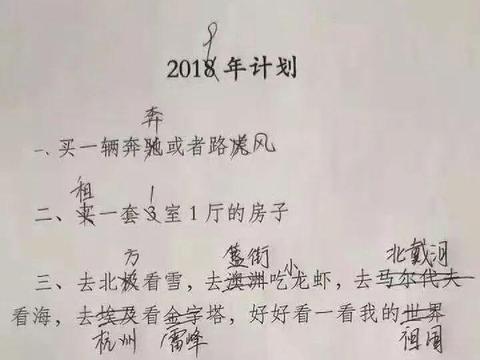 9
2018年计划
奔
一、买一辆奔驰或者路虎风
租 1
二、买一套3室1厅的房子
方 簋街 小 北戴河
三、去北极看雪，去澳洲吃龙虾，去马尔代夫
看海，去埃及看金字塔，好好看一看我的世界
杭州 雷峰 祖国